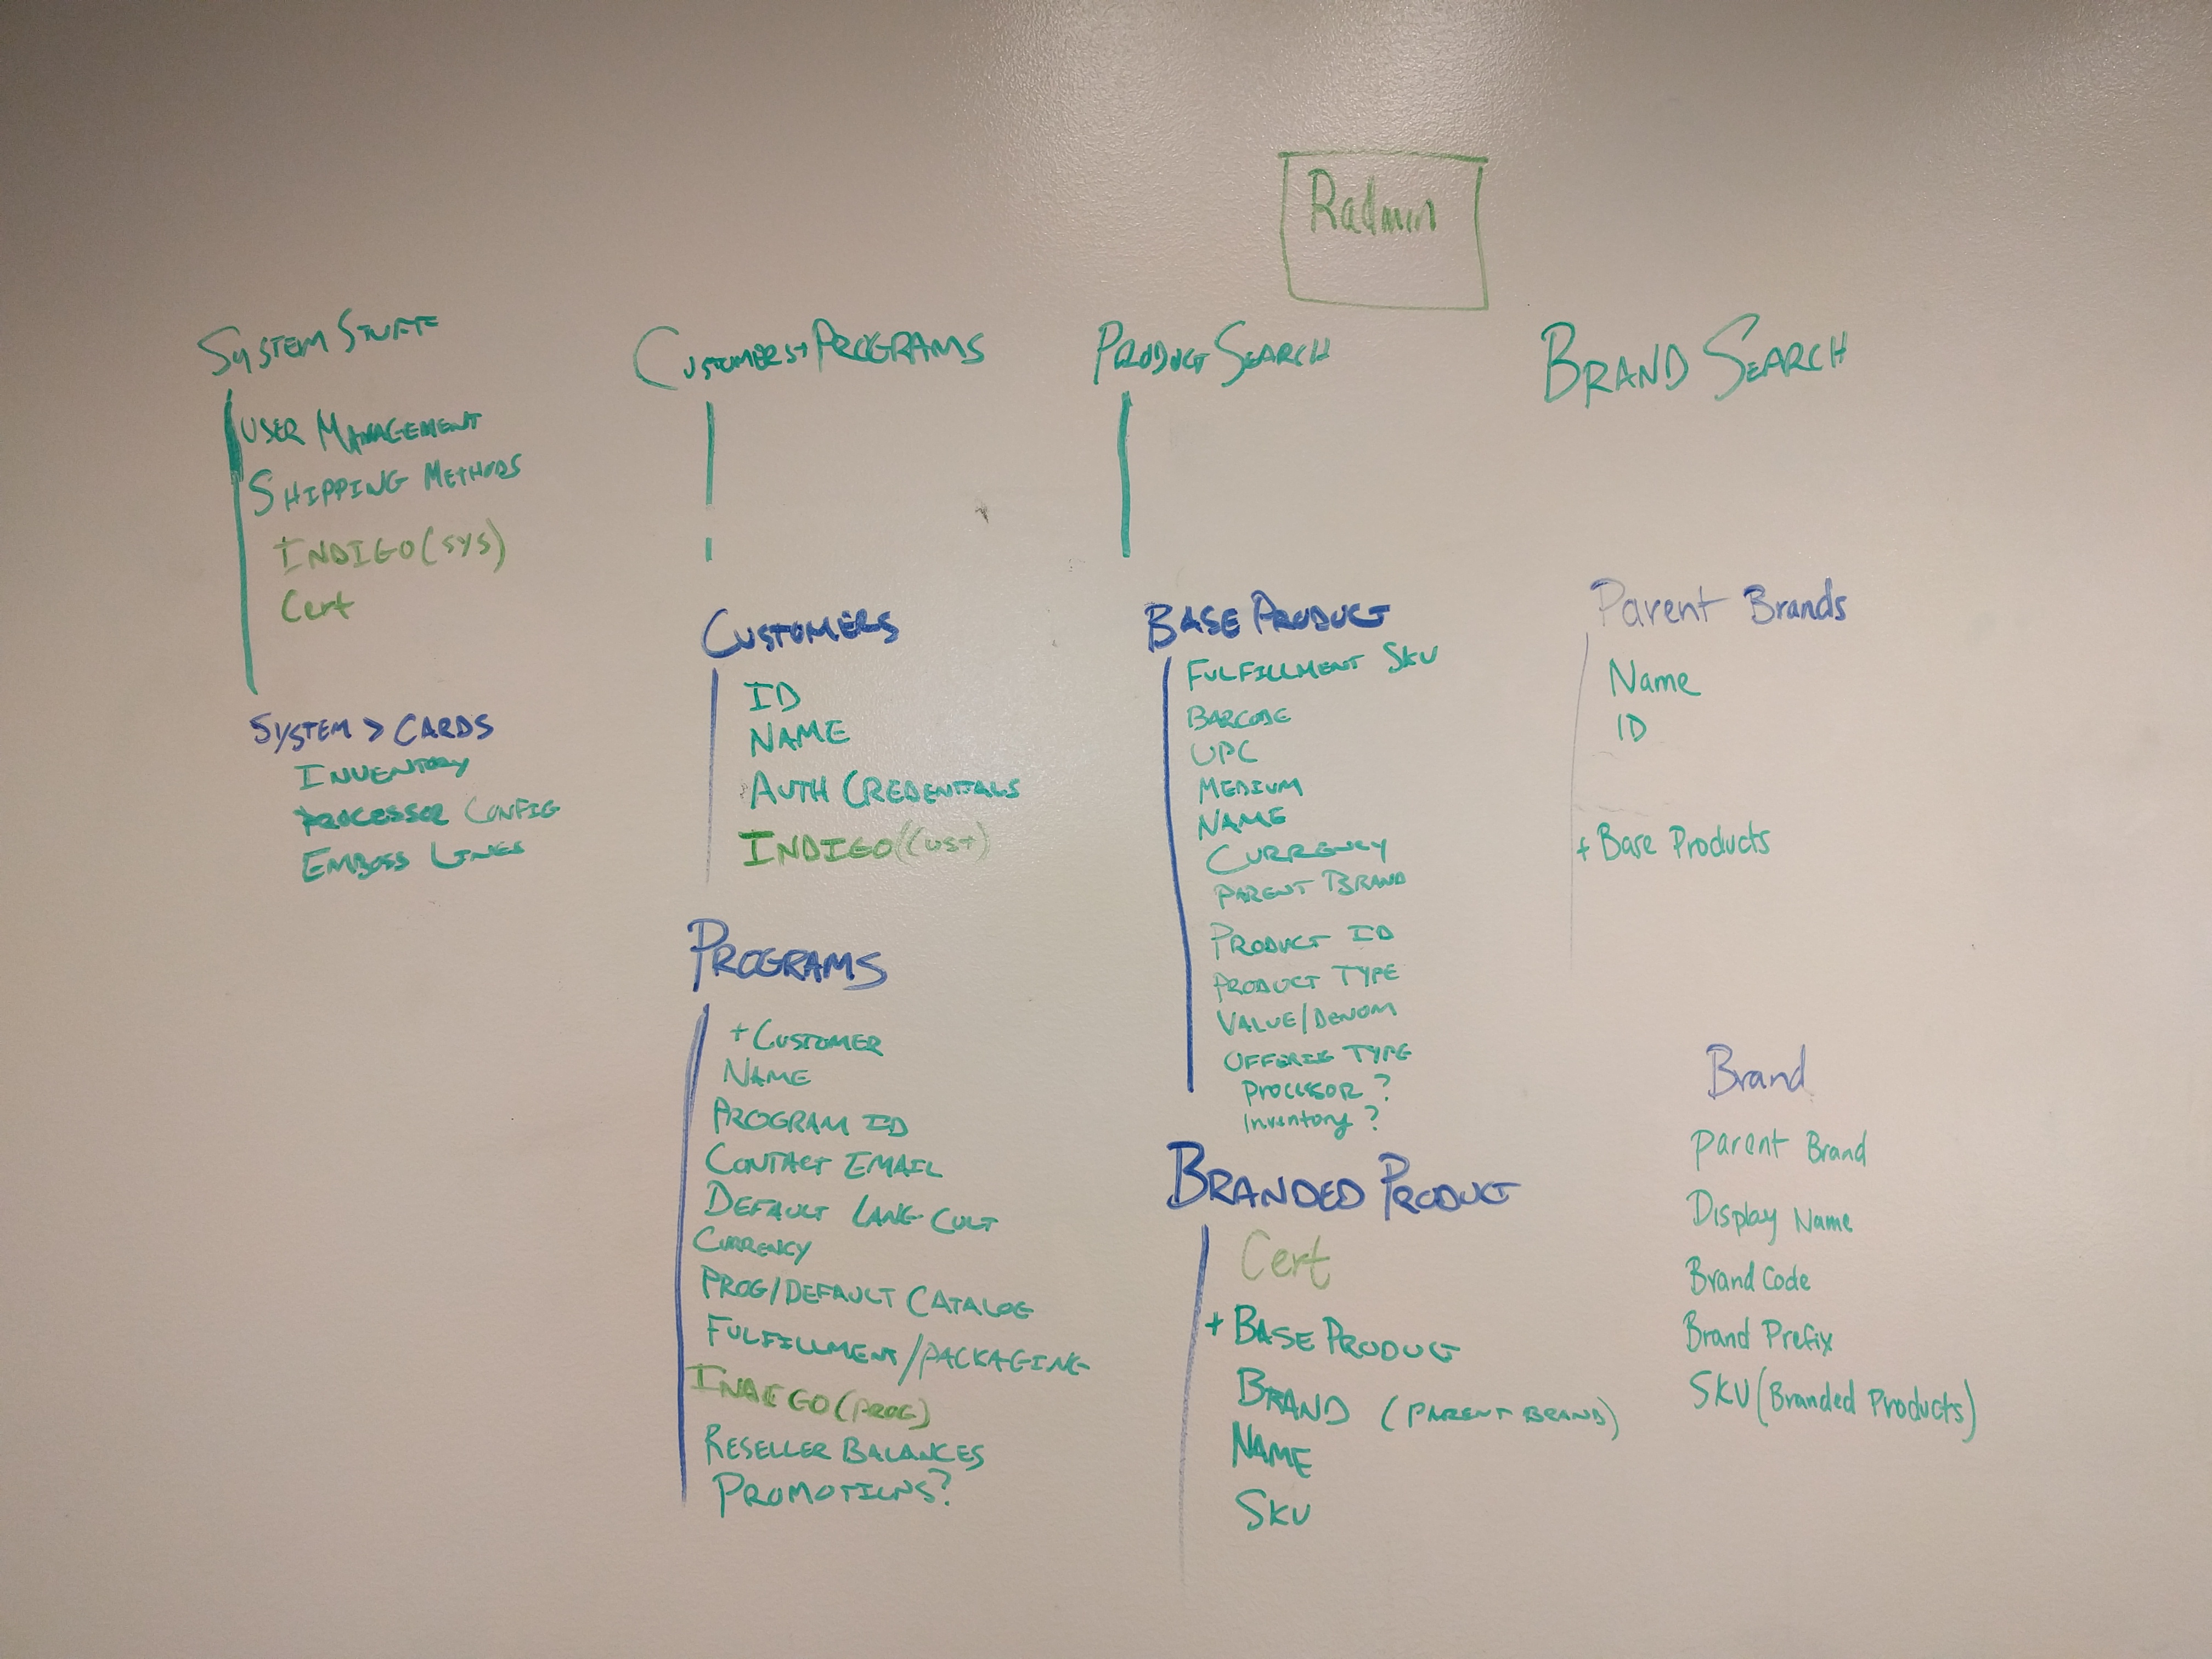 Radmin
SYSTEM STUFF
USER MANAGEMENT
SHIPPING METHODS
INDIGO (SYS)
Cert
SYSTEM > CARDS
INVENTORY
PROCESSOR CONFIG
EMBOSS LINES
CUSTOMERS + PROGRAMS
CUSTOMERS
ID
NAME
AUTH CREDENTIALS
INDIGO (CUST)
PROGRAMS
+ CUSTOMER
NAME
PROGRAM ID
CONTACT EMAIL
DEFAULT LANG-CULT
CURRENCY
PROG/DEFAULT CATALOG
FULFILLMENT/PACKAGING
INDIGO (PROG)
RESELLER BALANCES
PROMOTIONS?
PRODUCT SEARCH
BASE PRODUCT
FULFILLMENT SKU
BARCODE
UPC
MEDIUM
NAME
CURRENCY
PARENT BRAND
PRODUCT ID
PRODUCT TYPE
VALUE/DENOM
OFFERING TYPE
PROCESSOR ?
Inventory ?
BRANDED PRODUCT
Cert
+ BASE PRODUCT
BRAND (PARENT BRAND)
NAME
SKU
BRAND SEARCH
Parent Brands
Name
ID
+ Base Products
Brand
Parent Brand
Display Name
Brand Code
Brand Prefix
SKU (Branded Products)